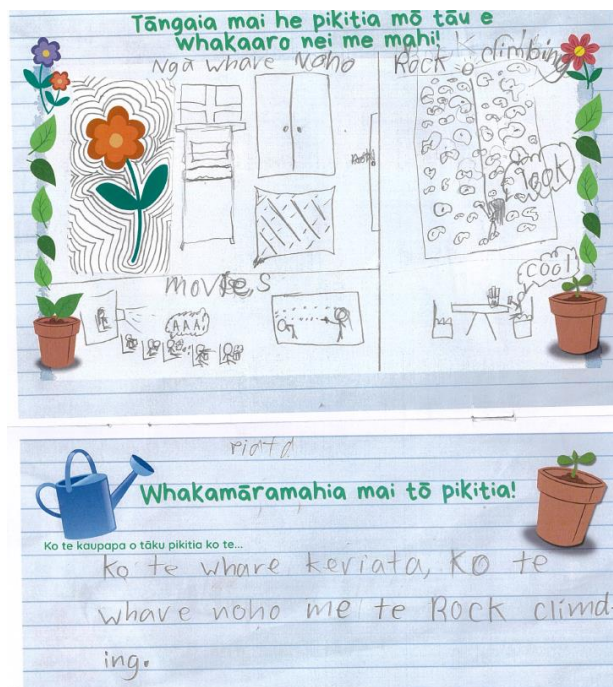 Tāngaia mai he pikitia mō tāu e
whakaaro nei me mahi!
Ngā whare Noho
Rock climbing
look
movies
AAA!
cool
riata
Whakamāramahia mai tō pikitia!
Ko te kaupapa o tāku pikitia ko te...
ko te whare keriata, KO te
whave noho me te Rock climd-
ing.